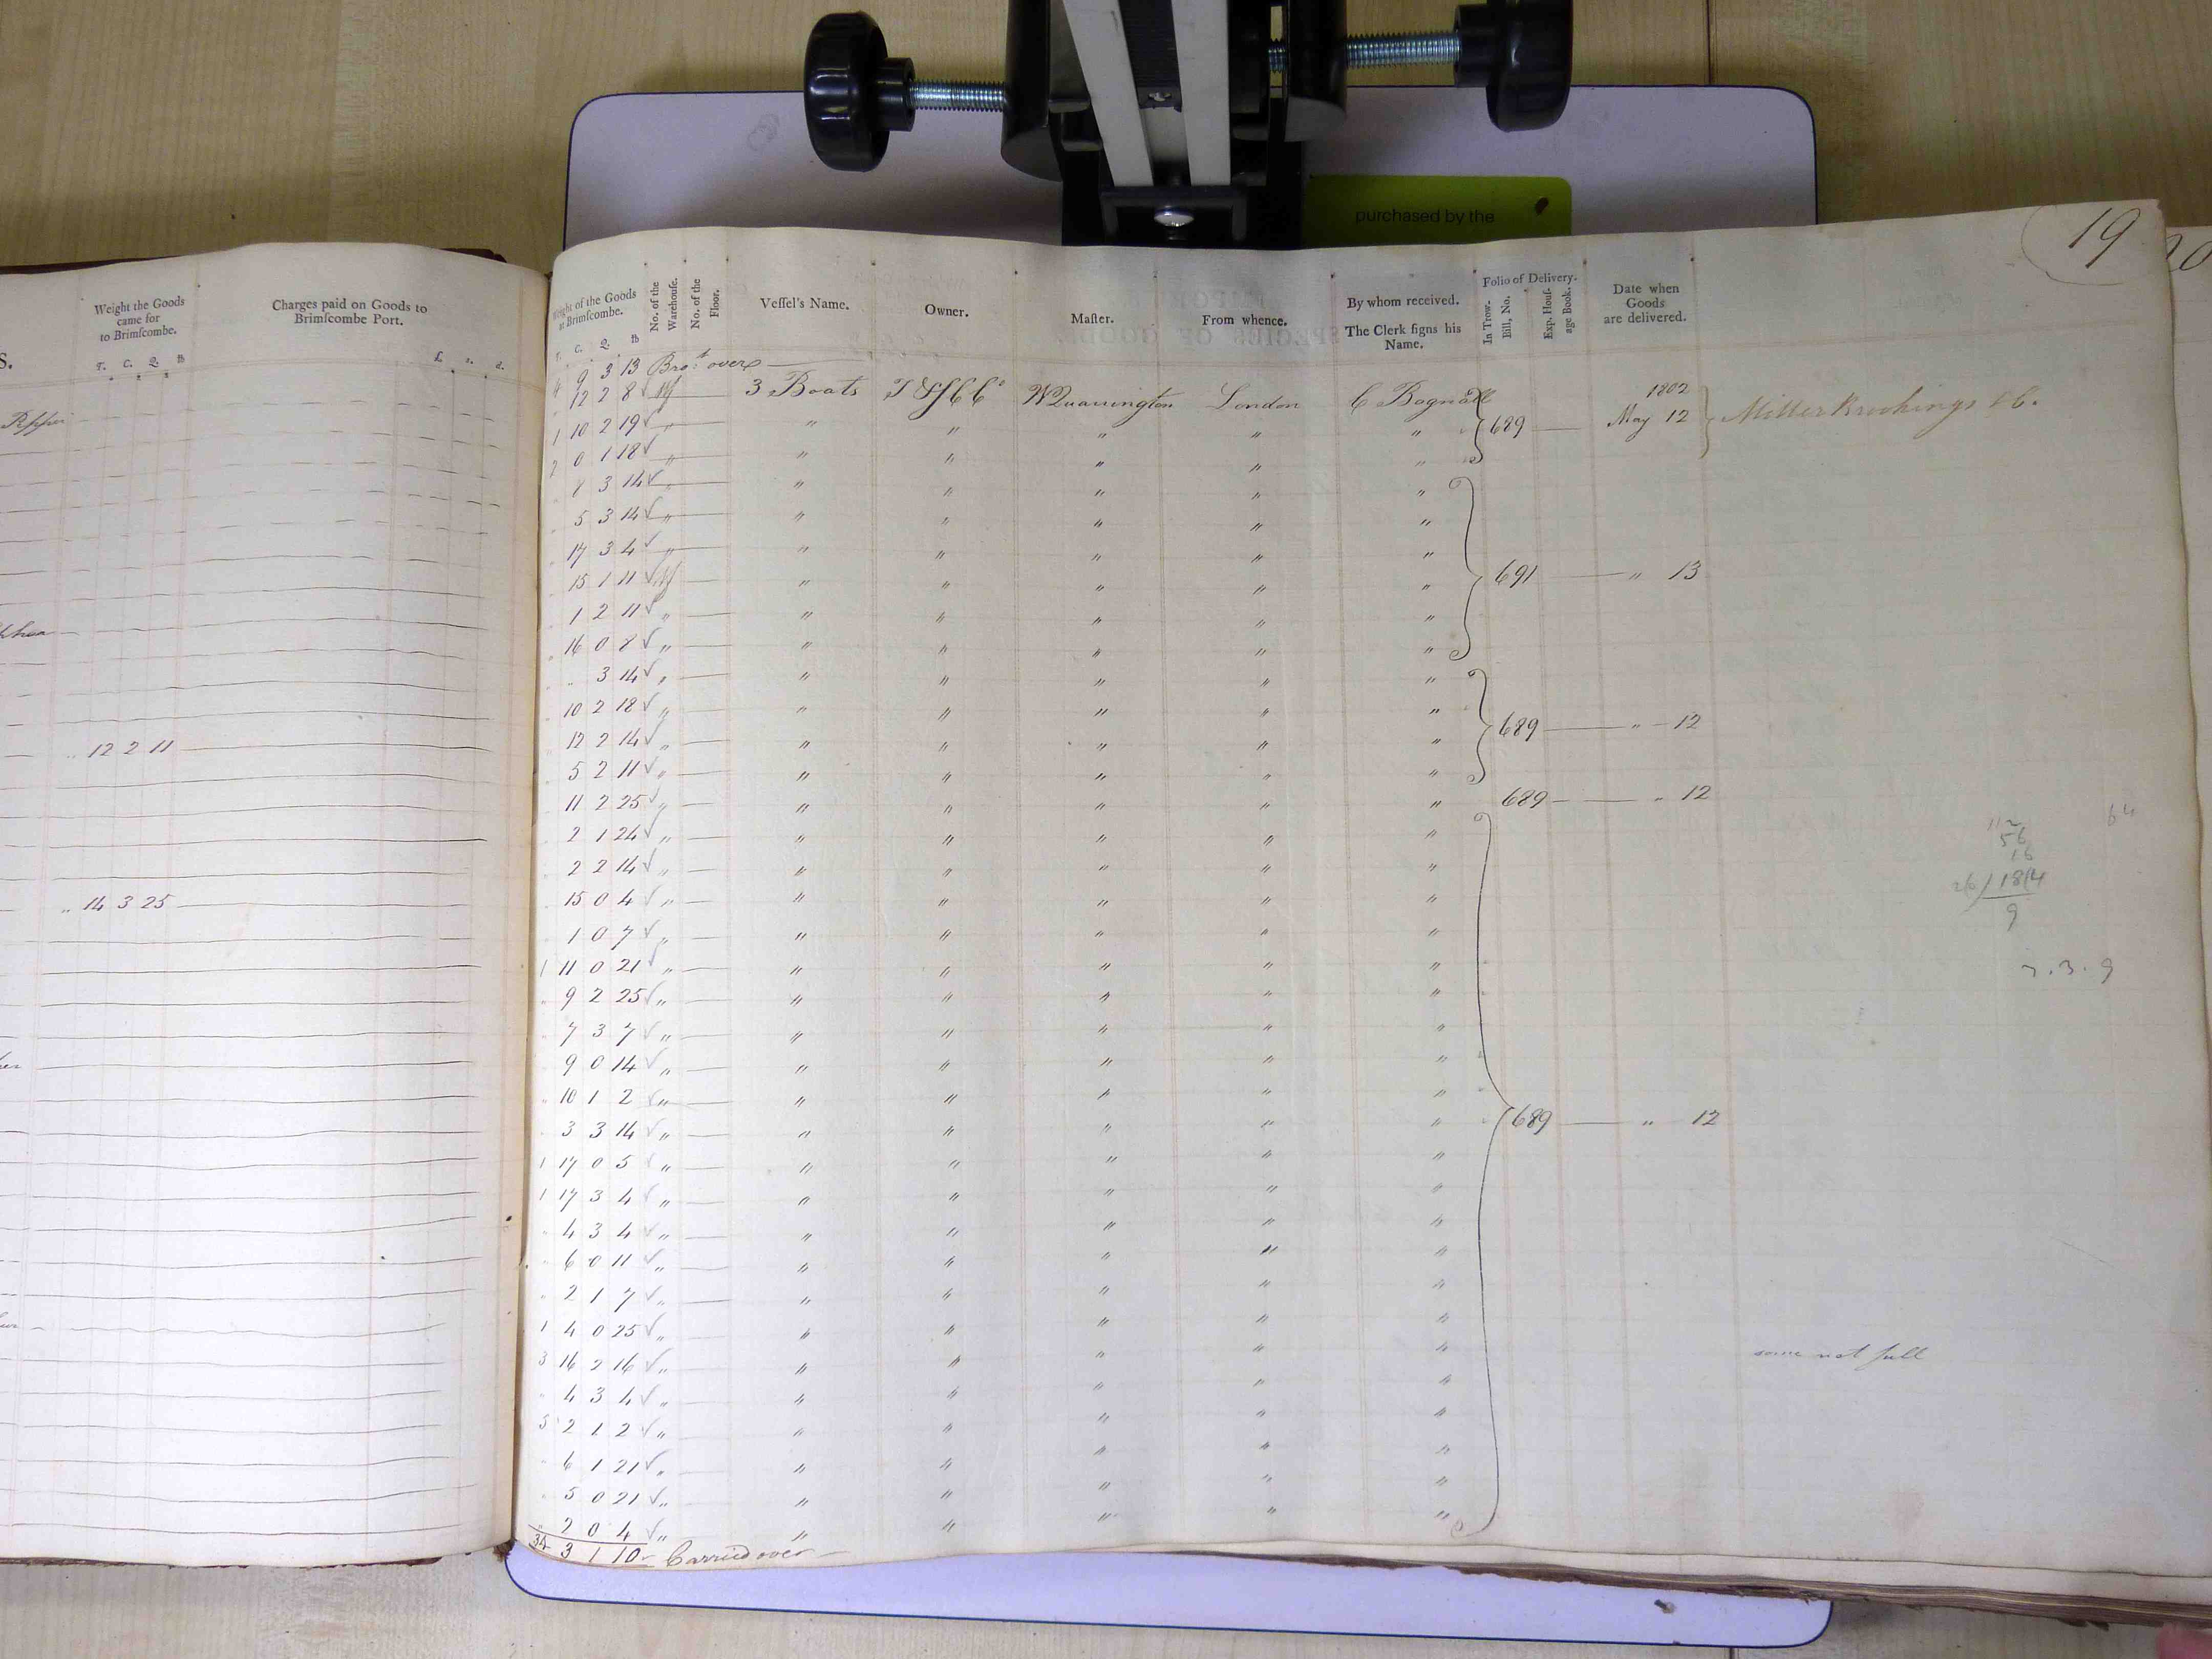 purchased by the
19
Weight the Goods
came for
to Brimſcombe.
T. C. Q. lb
Charges paid on Goods to
Brimſcombe Port.
£. s. d.
12 2 11
14 3 25
Weight of the Goods
at Brimſcombe.
T. C. Q. lb
No. of the
Warehouſe.
No. of the
Floor.
Veſſel's Name.
Owner.
Maſter.
From whence.
By whom received.
The Clerk ſigns his
Name.
Folio of Delivery.
In Trow.
Bill, No.
Exp. Houſ-
age Book.
Date when
Goods
are delivered.
4 9 3 13 Bro.t over
12 2 8 3 Boats W Quarrington London C Bagnall 1802
1 10 2 19 " " " " " 689 May 12 Miller Brookings & C.
2 0 1 18 " " " " " "
8 3 14 " " " " " "
5 3 14 " " " " " "
17 3 4 " " " " " "
15 1 11 " " " " " 691 " 13
1 2 11 " " " " " "
16 0 8 " " " " " "
" 3 14 " " " " " "
10 2 18 " " " " " "
12 2 14 " " " " " " 689 " 12
5 2 11 " " " " " "
11 2 25 " " " " " " 689 " 12
2 1 24 " " " " " "
2 2 14 " " " " " "
15 0 4 " " " " " "
1 0 7 " " " " " "
1 11 0 21 " " " " " "
9 2 25 " " " " " "
7 3 7 " " " " " "
9 0 14 " " " " " "
10 1 2 " " " " " "
3 3 14 " " " " " " 689 " 12
1 17 0 5 " " " " " "
1 17 3 4 " " " " " "
4 3 4 " " " " " "
6 0 11 " " " " " "
2 1 7 " " " " " "
1 4 0 25 " " " " " "
3 16 2 16 " " " " " " some not full
4 3 4 " " " " " "
5 2 1 2 " " " " " "
6 1 21 " " " " " "
5 0 21 " " " " " "
2 0 4 " " " " " "
34 3 1 10 Carried over
64
112
56
16
184
9
7.3.9